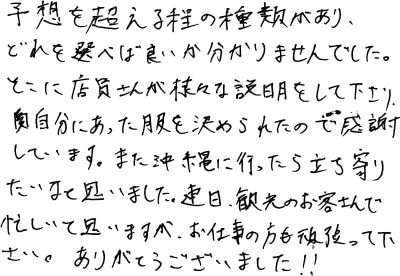 予想を超える程の種類があり、
どれを選べば良いか分かりませんでした。
そこに店員さんが様々な説明をして下さり、
自分にあった服を決められたので感謝
しています。また沖縄に行ったら立ち寄り
たいなと思いました。連日、観光のお客さんで
忙しいと思いますが、お仕事の方も頑張って下
さい。ありがとうございました!!